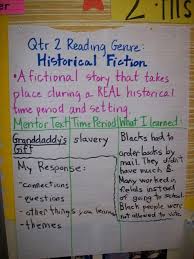 Qtr 2 Reading Genre:
Historical Fiction
• A fictional story that takes
place during a REAL historical
time period and setting.
Mentor Text
Time Period
What I learned
Granddaddy's
Gift
slavery
Blacks had to
order books by
mail. They didn't
have much $.
Many worked in
fields instead of
going to school.
Black people were
not allowed to vote.
My Response:
-connections
-questions
-other things you learned
-themes